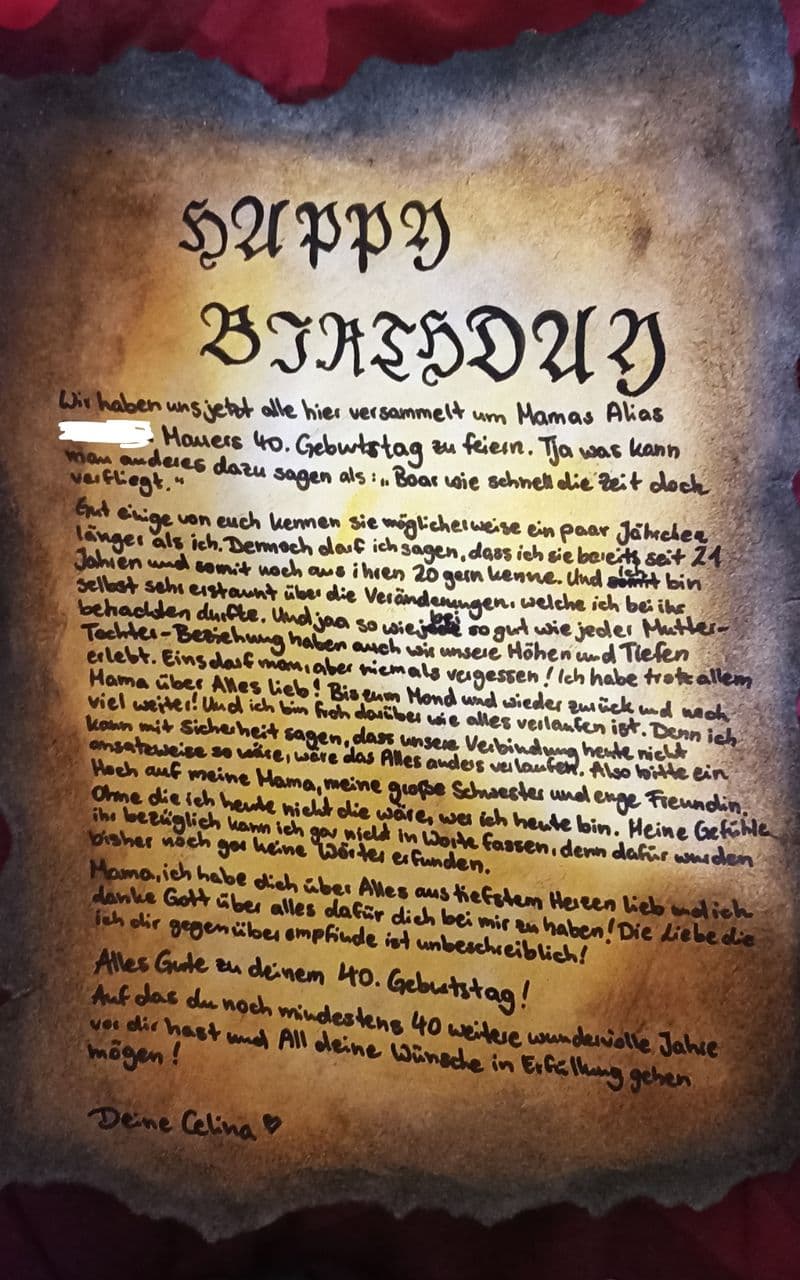 HAPPY
BIRTHDAY
Wir haben uns jetzt alle hier versammelt um Mamas Alias
Mauers 40. Geburtstag zu feiern. Tja was kann
man anderes dazu sagen als: „Boar wie schnell die Zeit doch
verfliegt."
Gut einige von euch kennen sie möglicherweise ein paar Jährchen
länger als ich. Dennoch darf ich sagen, dass ich sie bereits seit 21
Jahren und somit noch aus ihren 20 gern kenne. Und ich bin
selbst sehr erstaunt über die Veränderungen, welche ich bei ihr
betrachten durfte. Und jaa so wie bei so gut wie jeder Mutter-
Tochter-Beziehung haben auch wir unsere Höhen und Tiefen
erlebt. Eins darf man, aber niemals vergessen! Ich habe trotz allem
Mama über Alles lieb! Bis zum Mond und wieder zurück und noch
viel weiter! Und ich bin froh darüber wie alles verlaufen ist. Denn ich
kann mit Sicherheit sagen, dass unsere Verbindung heute nicht
ansatzweise so wäre, wäre das Alles anders verlaufen. Also bitte ein
Hoch auf meine Mama, meine große Schwester und enge Freundin.
Ohne die ich heute nicht die wäre, wer ich heute bin. Meine Gefühle
ihr bezüglich kann ich gar nicht in Worte fassen, denn dafür wurden
bisher noch gar keine Wörter erfunden.
Mama, ich habe dich über Alles aus tiefstem Herzen lieb und ich
danke Gott über alles dafür dich bei mir zu haben! Die Liebe die
ich dir gegenüber empfinde ist unbeschreiblich!
Alles Gute zu deinem 40. Geburtstag!
Auf das du noch mindestens 40 weitere wundervolle Jahre
vor dir hast und All deine Wünsche in Erfüllung gehen
mögen!
Deine Celina ♥